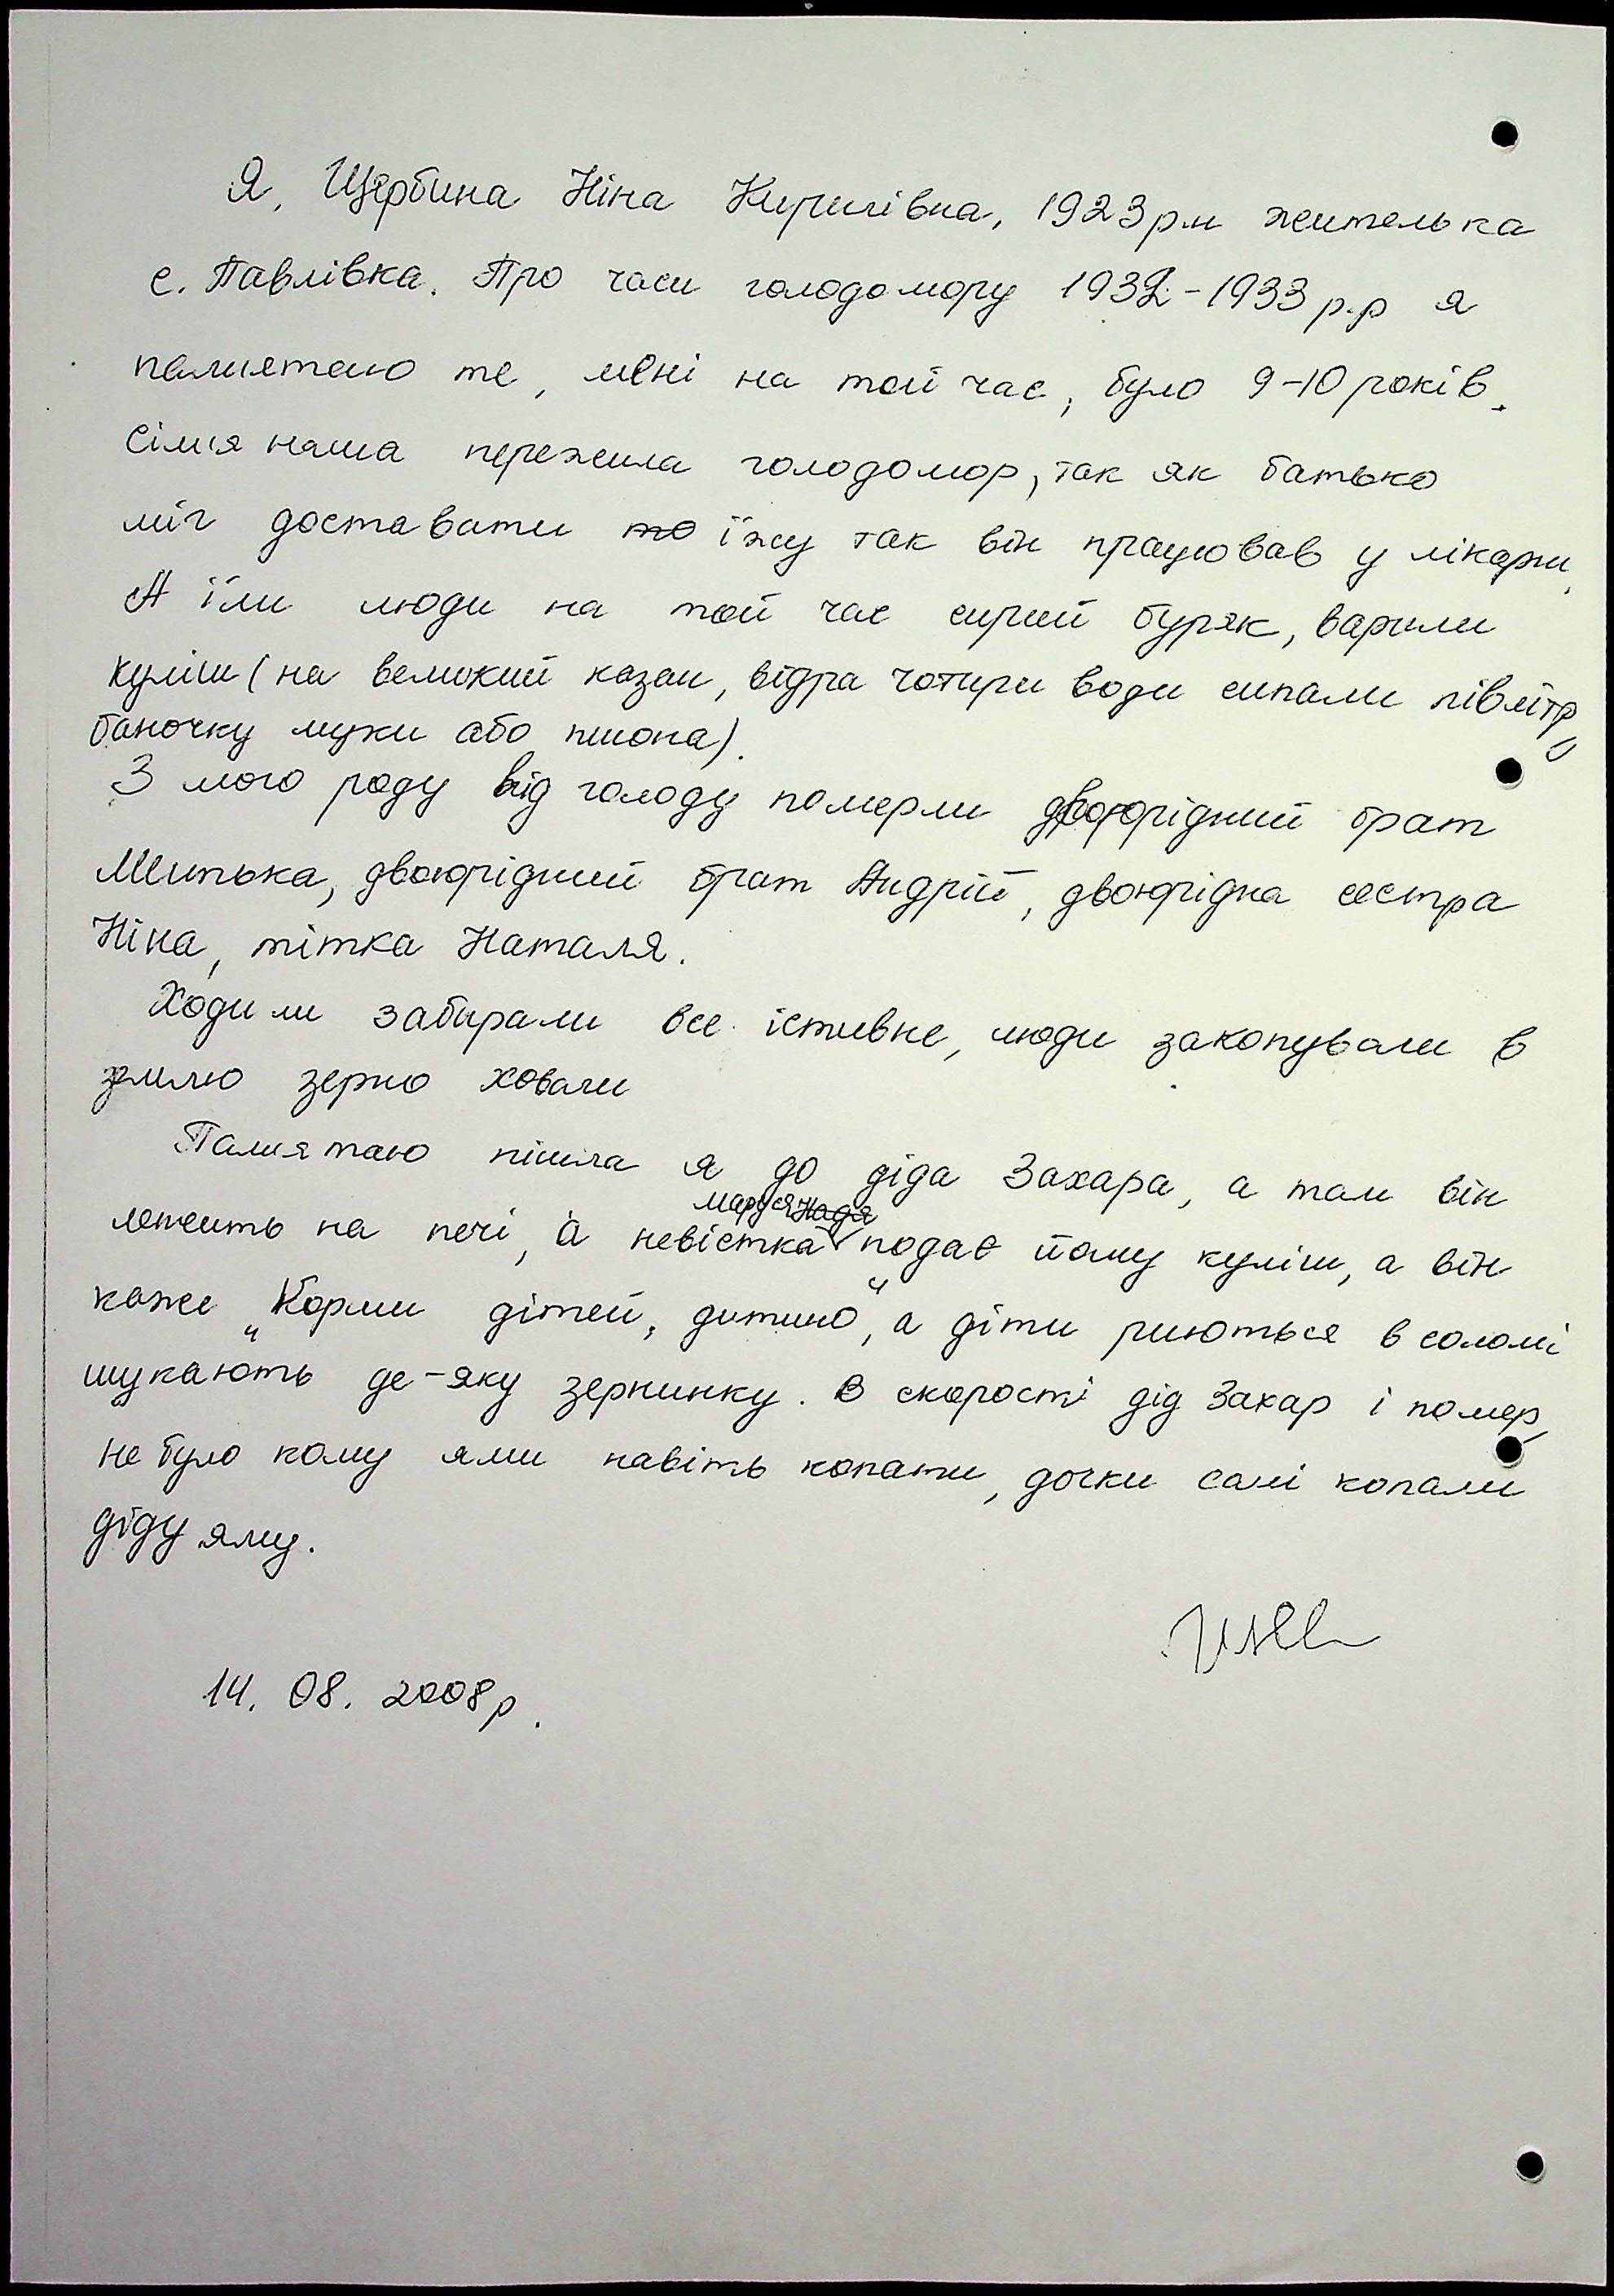 Я, Щербина Ніна Кирилівна, 1923 р.н жителька
с. Павлівка. Про часи голодомору 1932-1933 р.р я
памиятаю те, мені на той час, було 9-10 років.
Сімія наша пережила голодомор, так як батько
міг доставати то їжу так він працював у лікарні.
А їли люди на той час сирий буряк, варили
куліш (на великий казан, відра чотири води сипали півлітр
баночку муки або пшона).
З мого роду від голоду померли двоюрідний брат
Митька, двоюрідний брат Андрій, двоюрідна сестра
Ніна, тітка Наталя.
Ходили забирали все їстивне, люди закопували в
землю зерно ховали
Памиятаю пішла я до діда Захара, а там він
Маруся Надя
лежить на печі, а невістка подає йому куліш, а він
каже „Корми дітей, дитино", а діти риються в соломі
шукають де-яку зернинку. В скорості дід Захар і помер,
не було кому ями навіть копати, дочки самі копали
діду яму.
14. 08. 2008р.